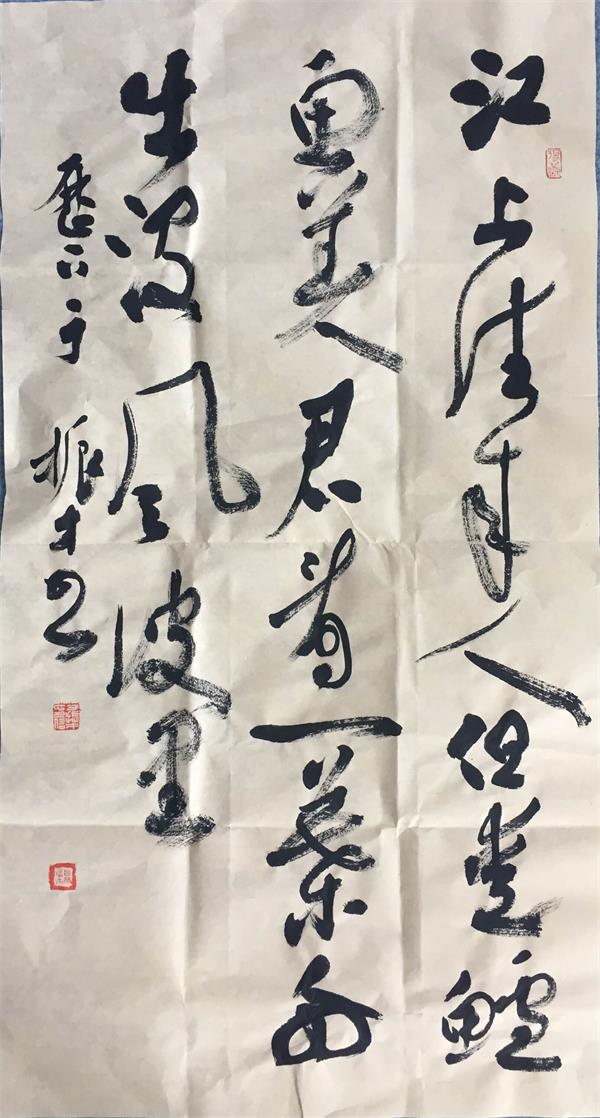 江上往来人但爱鲈
鱼美君看一葉舟
出没风波里
歷下于振才书